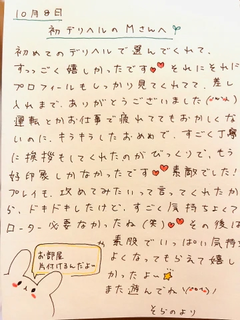 10月8日
初デリヘルのMさんへ
初めてのデリヘルで選んでくれて、
すっごく嬉しかったです♥♥ それにそれに
プロフィールもしっかり見てくれてて、差し
入れまで、ありがとうございました
運転とかお仕事で疲れててもおかしくな
いのに、キラキラしたおめめで、すごく丁寧
に挨拶もしてくれたのがびっくりで、もう
好印象しかなかったです♥ 素敵でした!
プレイも、攻めてみたいって言ってくれたか
ら、ドキドキしたけど、すごく気持ちよくて
ローター必要なかったね(笑)♥♥ その後は
素股でいっぱい気持ち
よくなってもらえて嬉し
かったよぉ
また遊んでね
そらのより
お部屋
片付けるんだよー